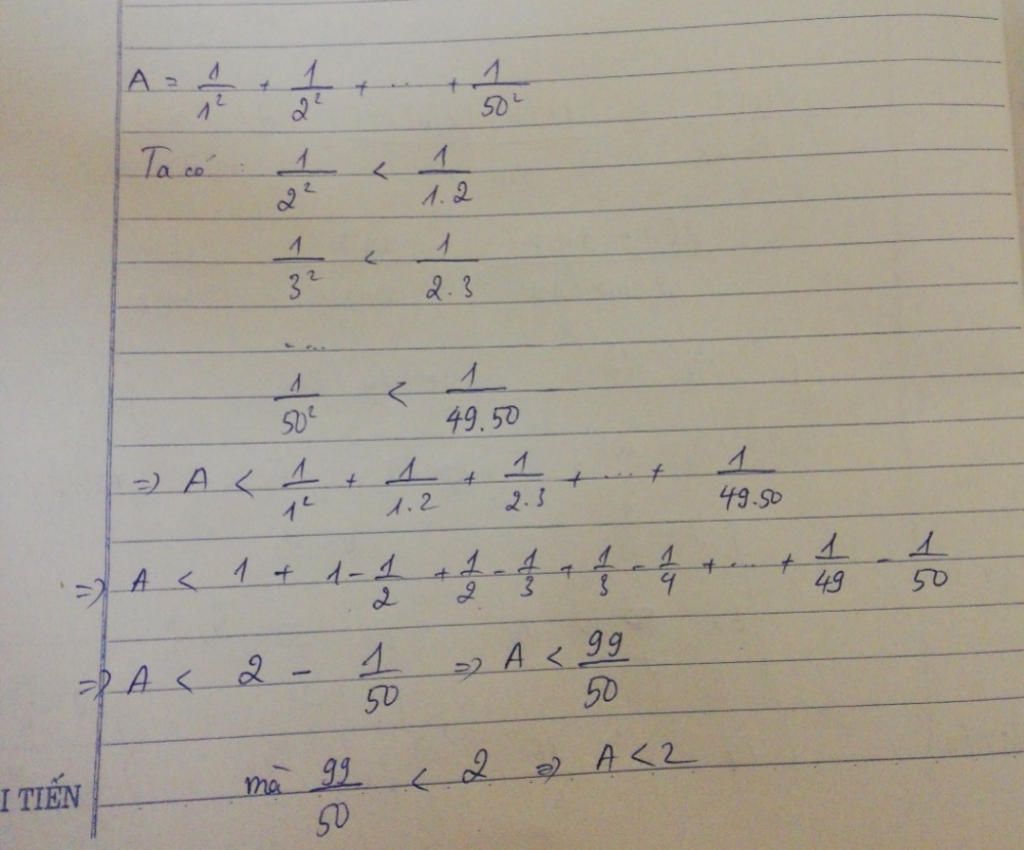 A = 1/1² + 1/2² + ... + 1/50²
Ta có : 1/2² < 1/1.2
1/3² < 1/2.3
....
1/50² < 1/49.50
=> A < 1/1² + 1/1.2 + 1/2.3 + ... + 1/49.50
=> A < 1 + 1 - 1/2 + 1/2 - 1/3 + 1/3 - 1/4 + ... + 1/49 - 1/50
=> A < 2 - 1/50 => A < 99/50
mà 99/50 < 2 => A < 2
I TIẾN